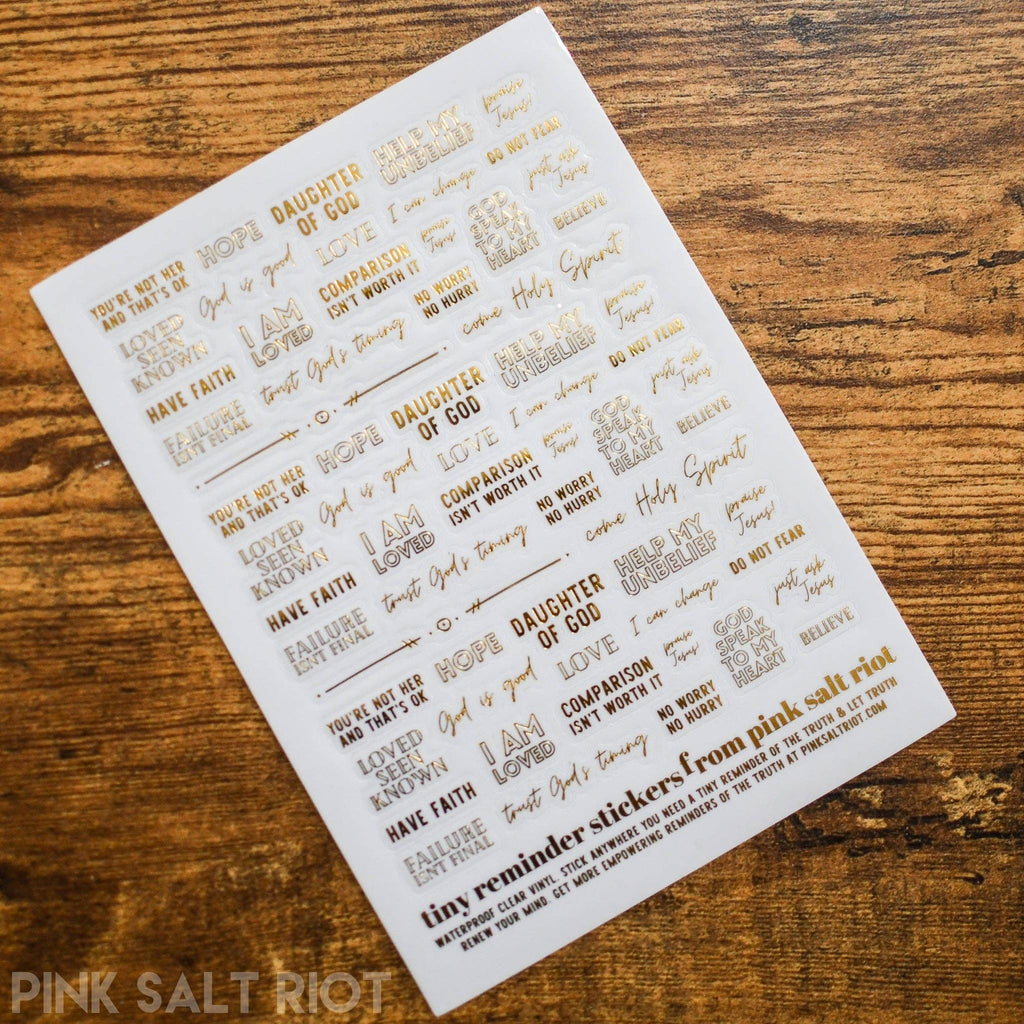 praise
Jesus!
HELP MY
UNBELIEF
DO NOT FEAR
DAUGHTER
OF GOD
I can change
just ask
Jesus
HOPE
LOVE
praise
Jesus!
GOD
SPEAK
TO MY
HEART
BELIEVE
YOU'RE NOT HER
AND THAT'S OK
God is good
COMPARISON
ISN'T WORTH IT
NO WORRY
NO HURRY
come Holy Spirit
LOVED
SEEN
KNOWN
I AM
LOVED
trust God's timing
HAVE FAITH
FAILURE
ISN'T FINAL
praise
Jesus!
HELP MY
UNBELIEF
DO NOT FEAR
DAUGHTER
OF GOD
I can change
just ask
Jesus
HOPE
LOVE
praise
Jesus!
GOD
SPEAK
TO MY
HEART
BELIEVE
YOU'RE NOT HER
AND THAT'S OK
God is good
COMPARISON
ISN'T WORTH IT
NO WORRY
NO HURRY
come Holy Spirit
LOVED
SEEN
KNOWN
I AM
LOVED
trust God's timing
HAVE FAITH
FAILURE
ISN'T FINAL
praise
Jesus!
HELP MY
UNBELIEF
DO NOT FEAR
DAUGHTER
OF GOD
I can change
just ask
Jesus
HOPE
LOVE
praise
Jesus!
GOD
SPEAK
TO MY
HEART
BELIEVE
YOU'RE NOT HER
AND THAT'S OK
God is good
COMPARISON
ISN'T WORTH IT
NO WORRY
NO HURRY
LOVED
SEEN
KNOWN
I AM
LOVED
trust God's timing
HAVE FAITH
FAILURE
ISN'T FINAL
tiny reminder stickers from pink salt riot
WATERPROOF CLEAR VINYL. STICK ANYWHERE YOU NEED A TINY REMINDER OF THE TRUTH & LET TRUTH
RENEW YOUR MIND. GET MORE EMPOWERING REMINDERS OF THE TRUTH AT PINKSALTRIOT.COM
PINK SALT RIOT